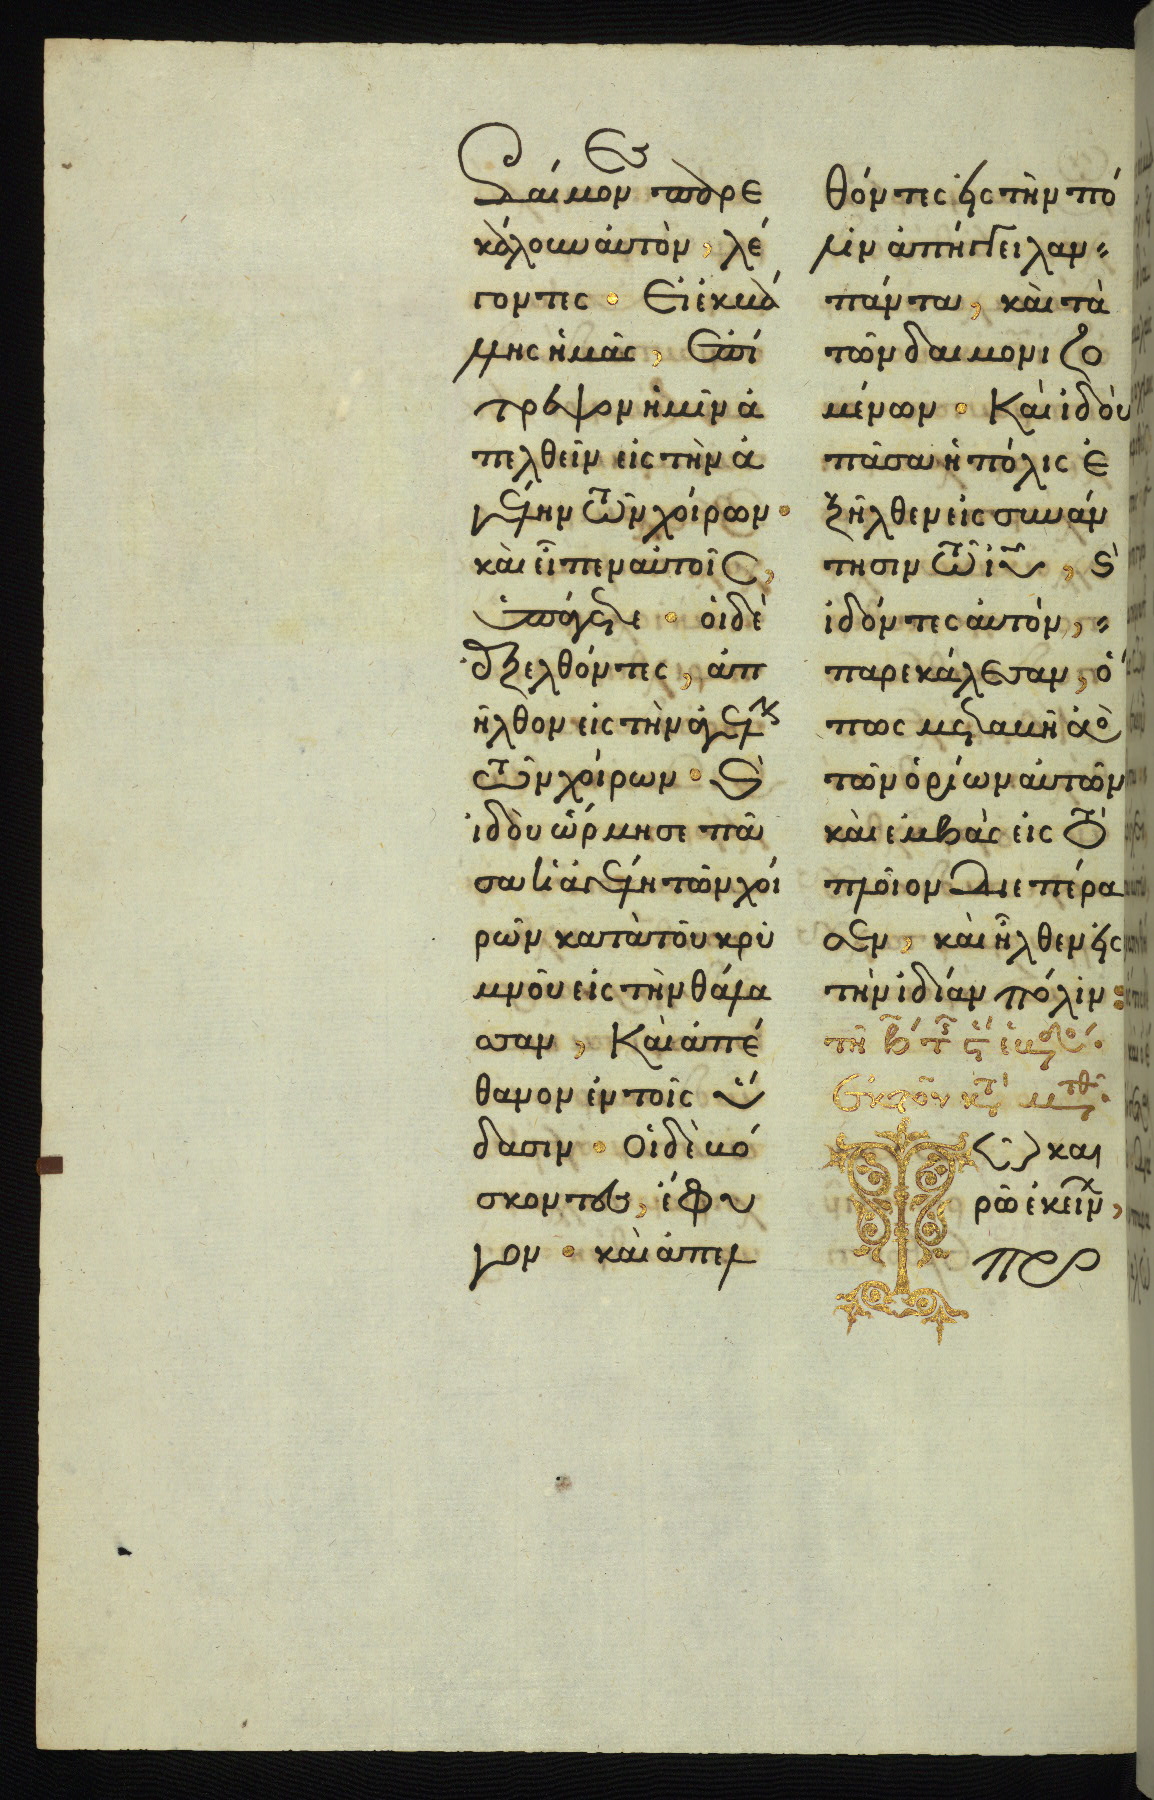 δαίμονες παρε
κάλουν αὐτὸν, λέ
γοντες · Εἰ ἐκβά
λλης ἡμᾶς, ἐπί
τρεψον ἡμῖν ἀ
πελθεῖν εἰς τὴν ἀ
γέλην τῶν χοίρων ·
καὶ εἶπεν αὐτοῖς,
ὑπάγετε · οἱ δὲ
ἐξελθόντες, ἀπ
ῆλθον εἰς τὴν ἀγέλην
τῶν χοίρων · καὶ
ἰδοὺ ὥρμησε πᾶ
σα ἡ ἀγέλη τῶν χοί
ρων κατὰ τοῦ κρη
μνοῦ εἰς τὴν θάλα
σσαν, Καὶ ἀπέ
θανον ἐν τοῖς ὕ
δασιν · Οἱ δὲ βό
σκοντες, ἔφυ
γον · καὶ ἀπελ
θόντες εἰς τὴν πό
λιν ἀπήγγειλαν
πάντα, καὶ τὰ
τῶν δαιμονιζο
μένων · Καὶ ἰδοὺ
πᾶσα ἡ πόλις ἐ
ξῆλθεν εἰς συνάν
τησιν τῷ ἰῦ, καὶ
ἰδόντες αὐτόν,
παρεκάλεσαν, ὅ
πως μεταβῇ ἀπὸ
τῶν ὁρίων αὐτῶν
καὶ ἐμβὰς εἰς τὸ
πλοῖον διεπέρα
σεν, καὶ ἦλθεν εἰς
τὴν ἰδίαν πόλιν:
τῇ β τῆς ϛ ἑβδ
Ἐκ τοῦ κατὰ Ματθ
Τῷ και
ρῷ ἐκείνῳ,
περ